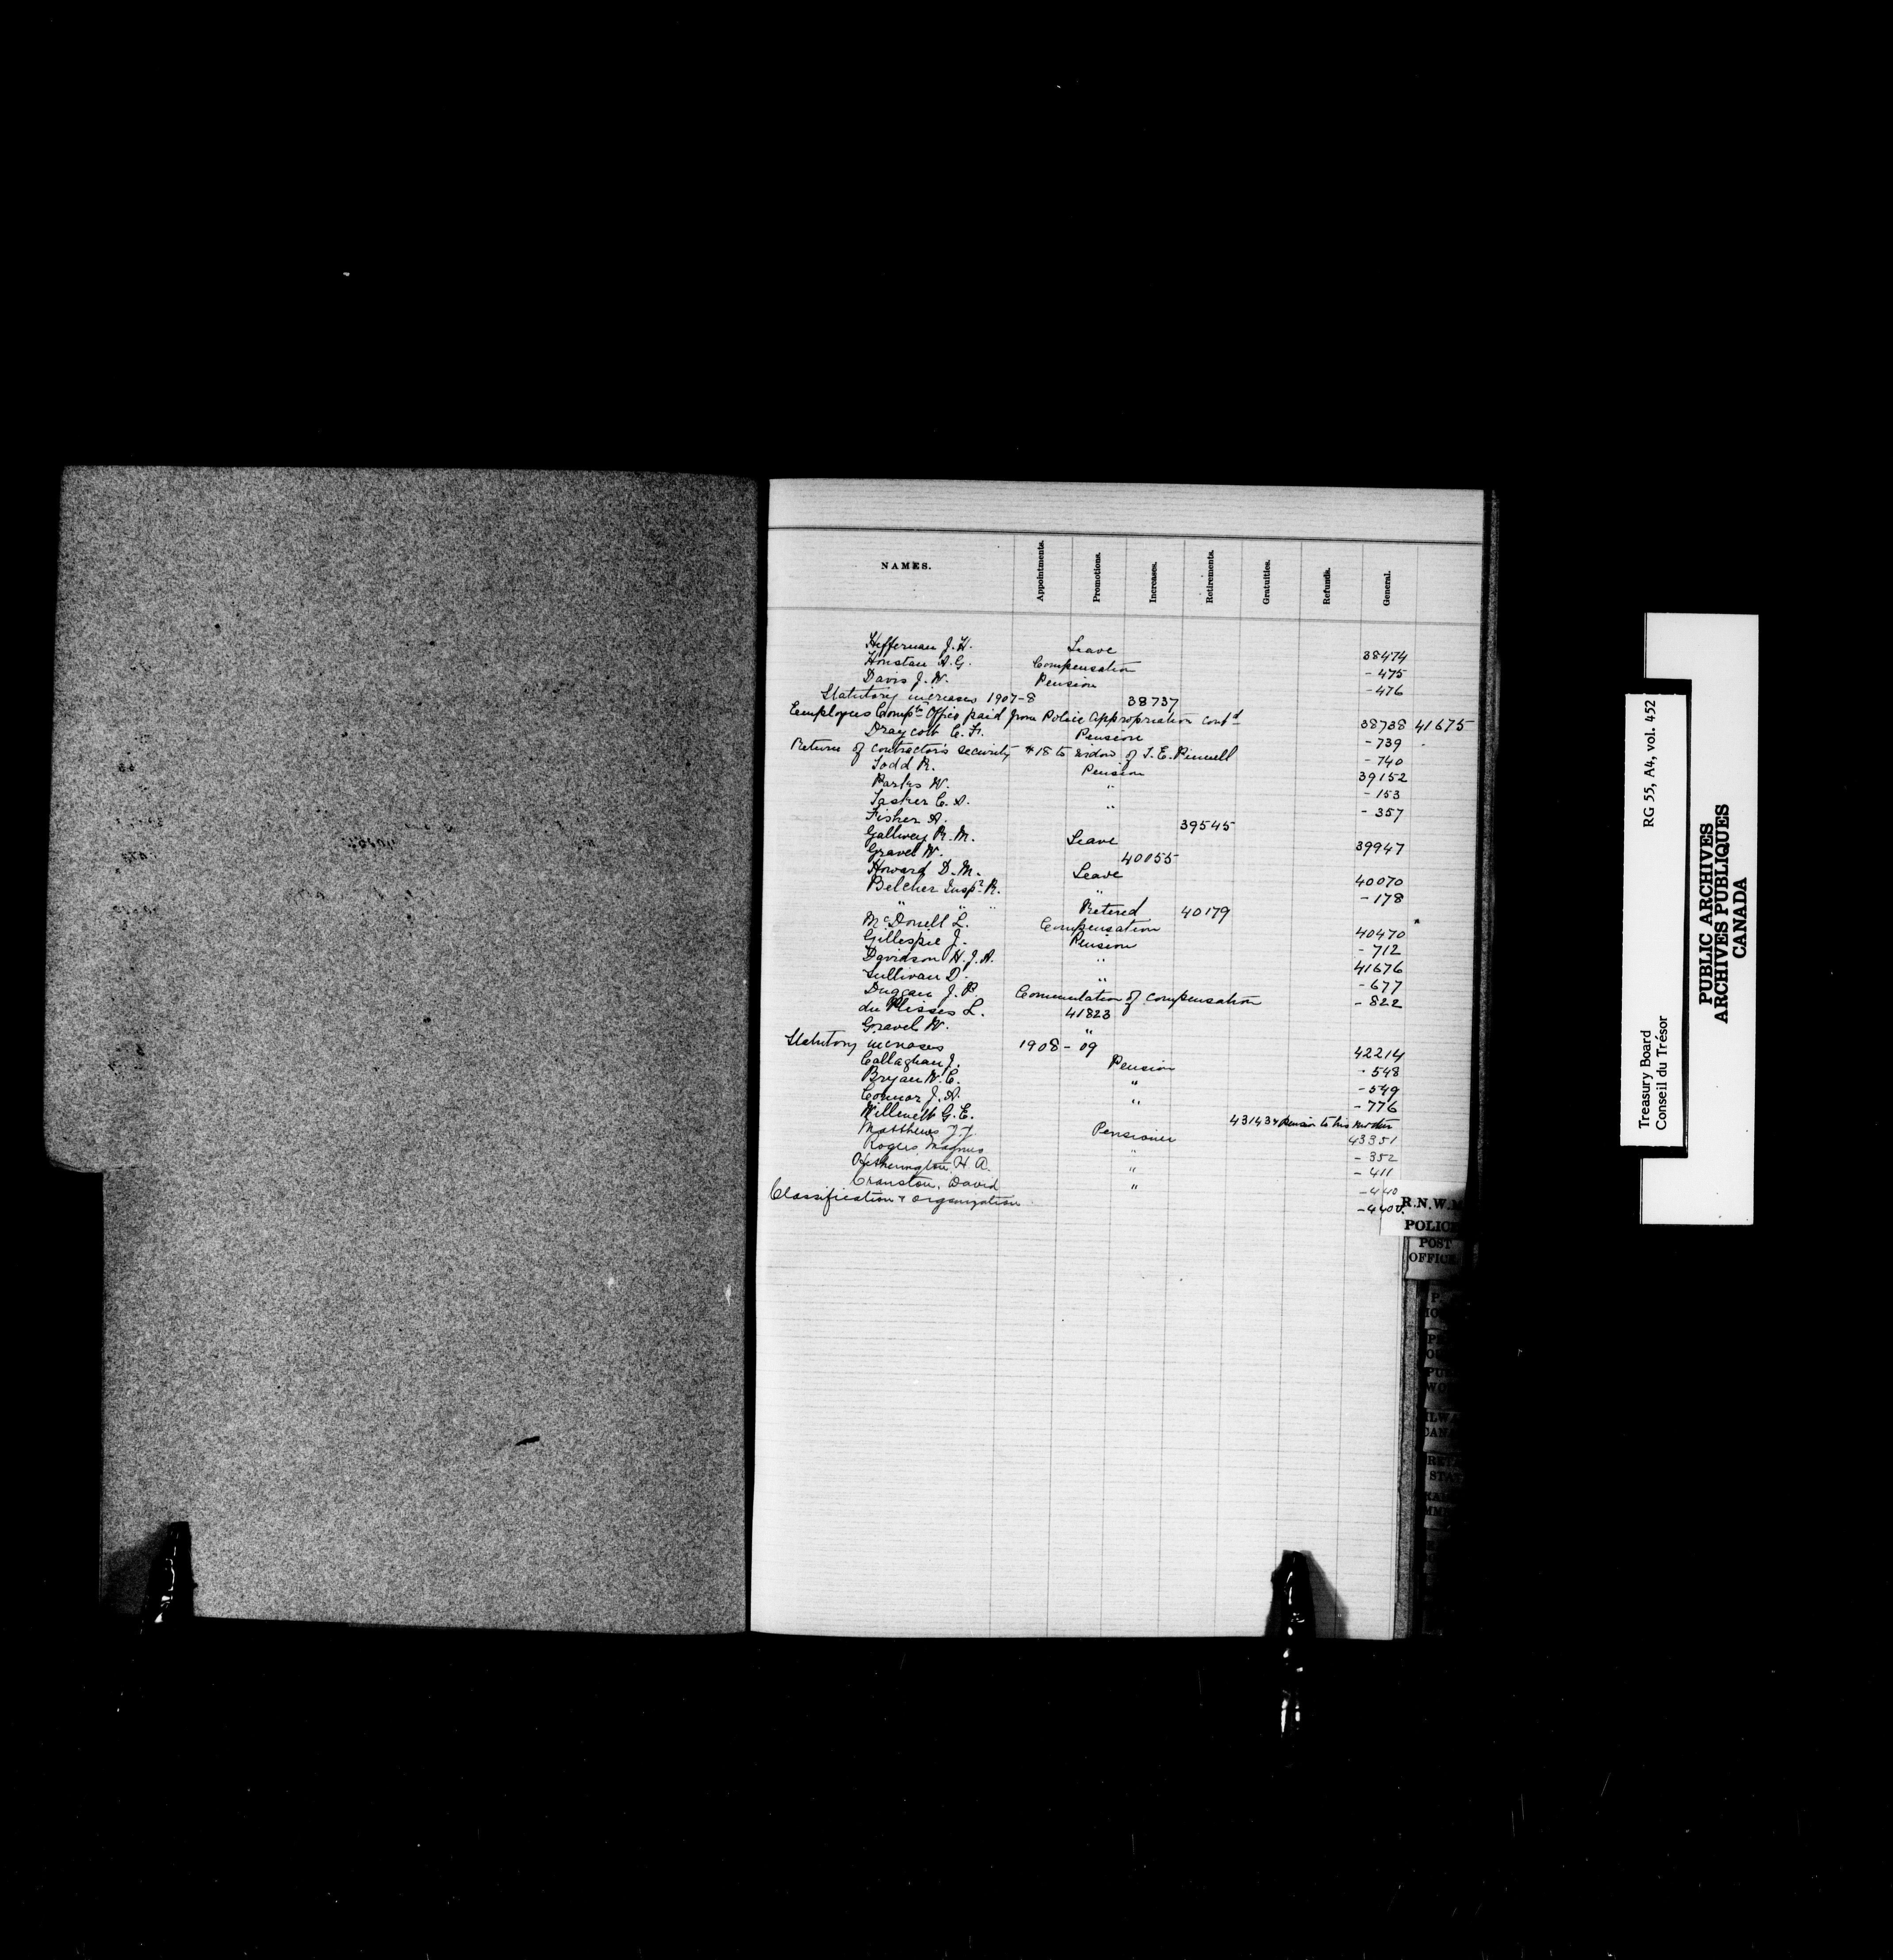 NAMES. Appointments. Promotions. Increases. Retirements. Gratuities. Refunds. General.
Heffernan J. H. Leave 38474
Houstan A. G. Compensation - 475
Davis J. W. Pension - 476
Statutory increases 1907-8 38737
Employees Compt's Office paid from Police Appropriation contd 38738 41675
Draycott C. F. Pension - 739
Return of contractors security #18 to widow of T. E. Pinnell - 740
Todd R. Pension 39152
Parks W. " - 153
Tasker C. A. " - 357
Fisher A. 39545
Gallwey R. M. Leave 39947
Gravel W. 40055
Howard D. M. Leave 40070
Belcher Inspr R. " - 178
" " " Retired 40179
McDonell L. Compensation 40470
Gillespie J. Pension - 712
Davidson H. J. A. " 41676
Sullivan D. " - 677
Duggan J. P. Commutation of compensation - 822
du Plisses L. 41823
Gravel W. "
Statutory increases 1908-09 42214
Callaghan J. Pension - 548
Bryan W. C. " - 549
Connor J. A. " - 776
Willmett G. E. Pension to his mother
Matthews Pensioner 43351
Rogers, Magnus " - 352
Hetherington, H. A. " - 411
Cranston, David " - 440
Classification & organization
R.N.W.M.
POLICE
POST
OFFICE
Treasury Board
Conseil du Trésor
RG 55, A4, vol. 452
PUBLIC ARCHIVES
ARCHIVES PUBLIQUES
CANADA